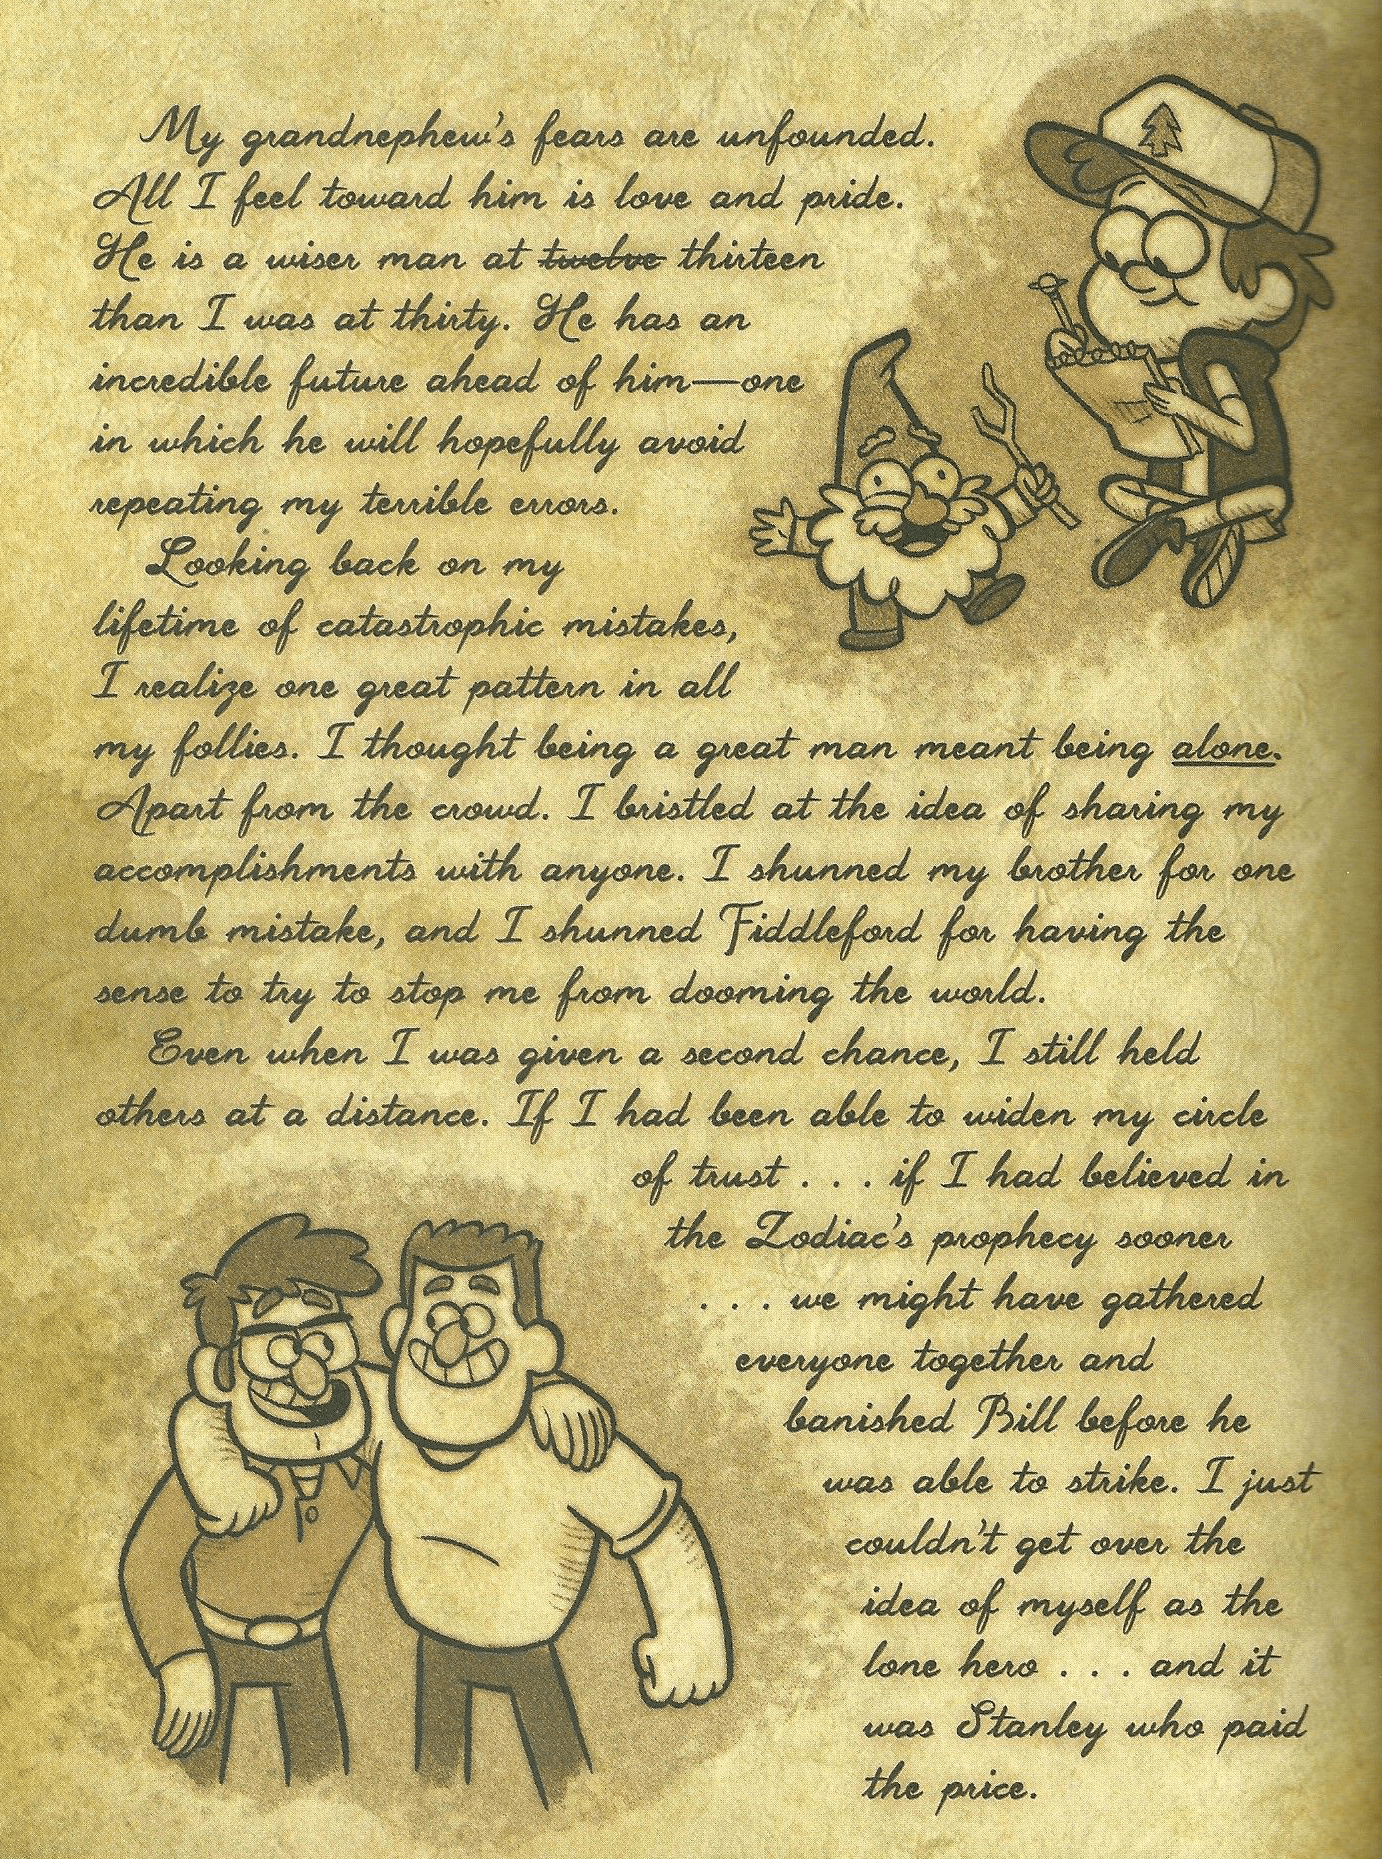 My grandnephew's fears are unfounded.
All I feel toward him is love and pride.
He is a wiser man at twelve thirteen
than I was at thirty. He has an
incredible future ahead of him—one
in which he will hopefully avoid
repeating my terrible errors.
Looking back on my
lifetime of catastrophic mistakes,
I realize one great pattern in all
my follies. I thought being a great man meant being alone.
Apart from the crowd. I bristled at the idea of sharing my
accomplishments with anyone. I shunned my brother for one
dumb mistake, and I shunned Fiddleford for having the
sense to try to stop me from dooming the world.
Even when I was given a second chance, I still held
others at a distance. If I had been able to widen my circle
of trust . . . if I had believed in
the Zodiac's prophecy sooner
. . . we might have gathered
everyone together and
banished Bill before he
was able to strike. I just
couldn't get over the
idea of myself as the
lone hero . . . and it
was Stanley who paid
the price.